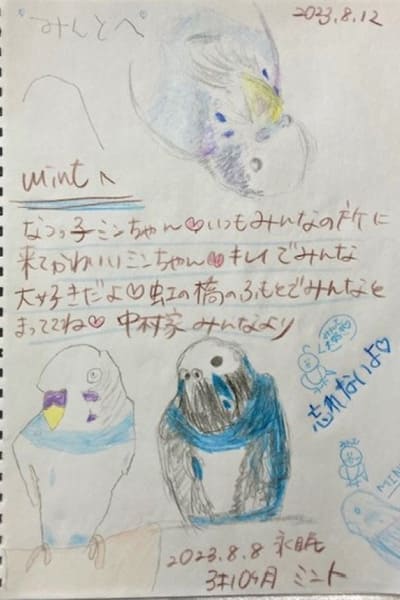 みんとへ
2023.8.12
mintへ
なつっ子ミンちゃん♡いつもみんなの所に
来てかわいいミンちゃん♡キレイでみんな
大好きだよ♡虹の橋のふもとでみんなを
まっててね♡ 中村家 みんなより
忘れないよ♡
MIN
2023.8.8 永眠
3才10ヶ月 ミント